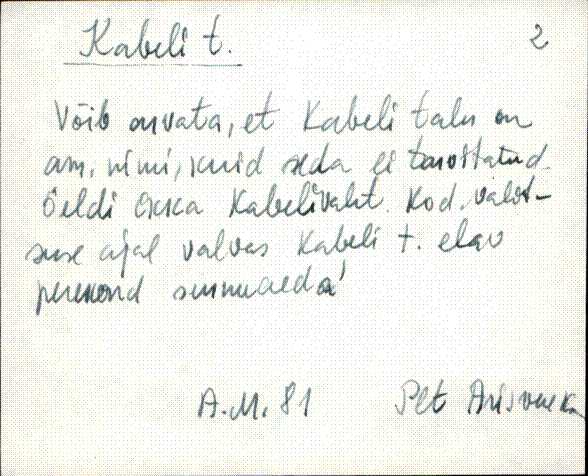 Kabeli t. 2
Võib arvata, et Kabeli talu on
am. nimi, kuid seda ei tarvitatud.
Öeldi ikka Kabelivaht. Kod. valit-
suse ajal valvas Kabeli t. elav
perekond surnuaeda
A.M. 81 Pet